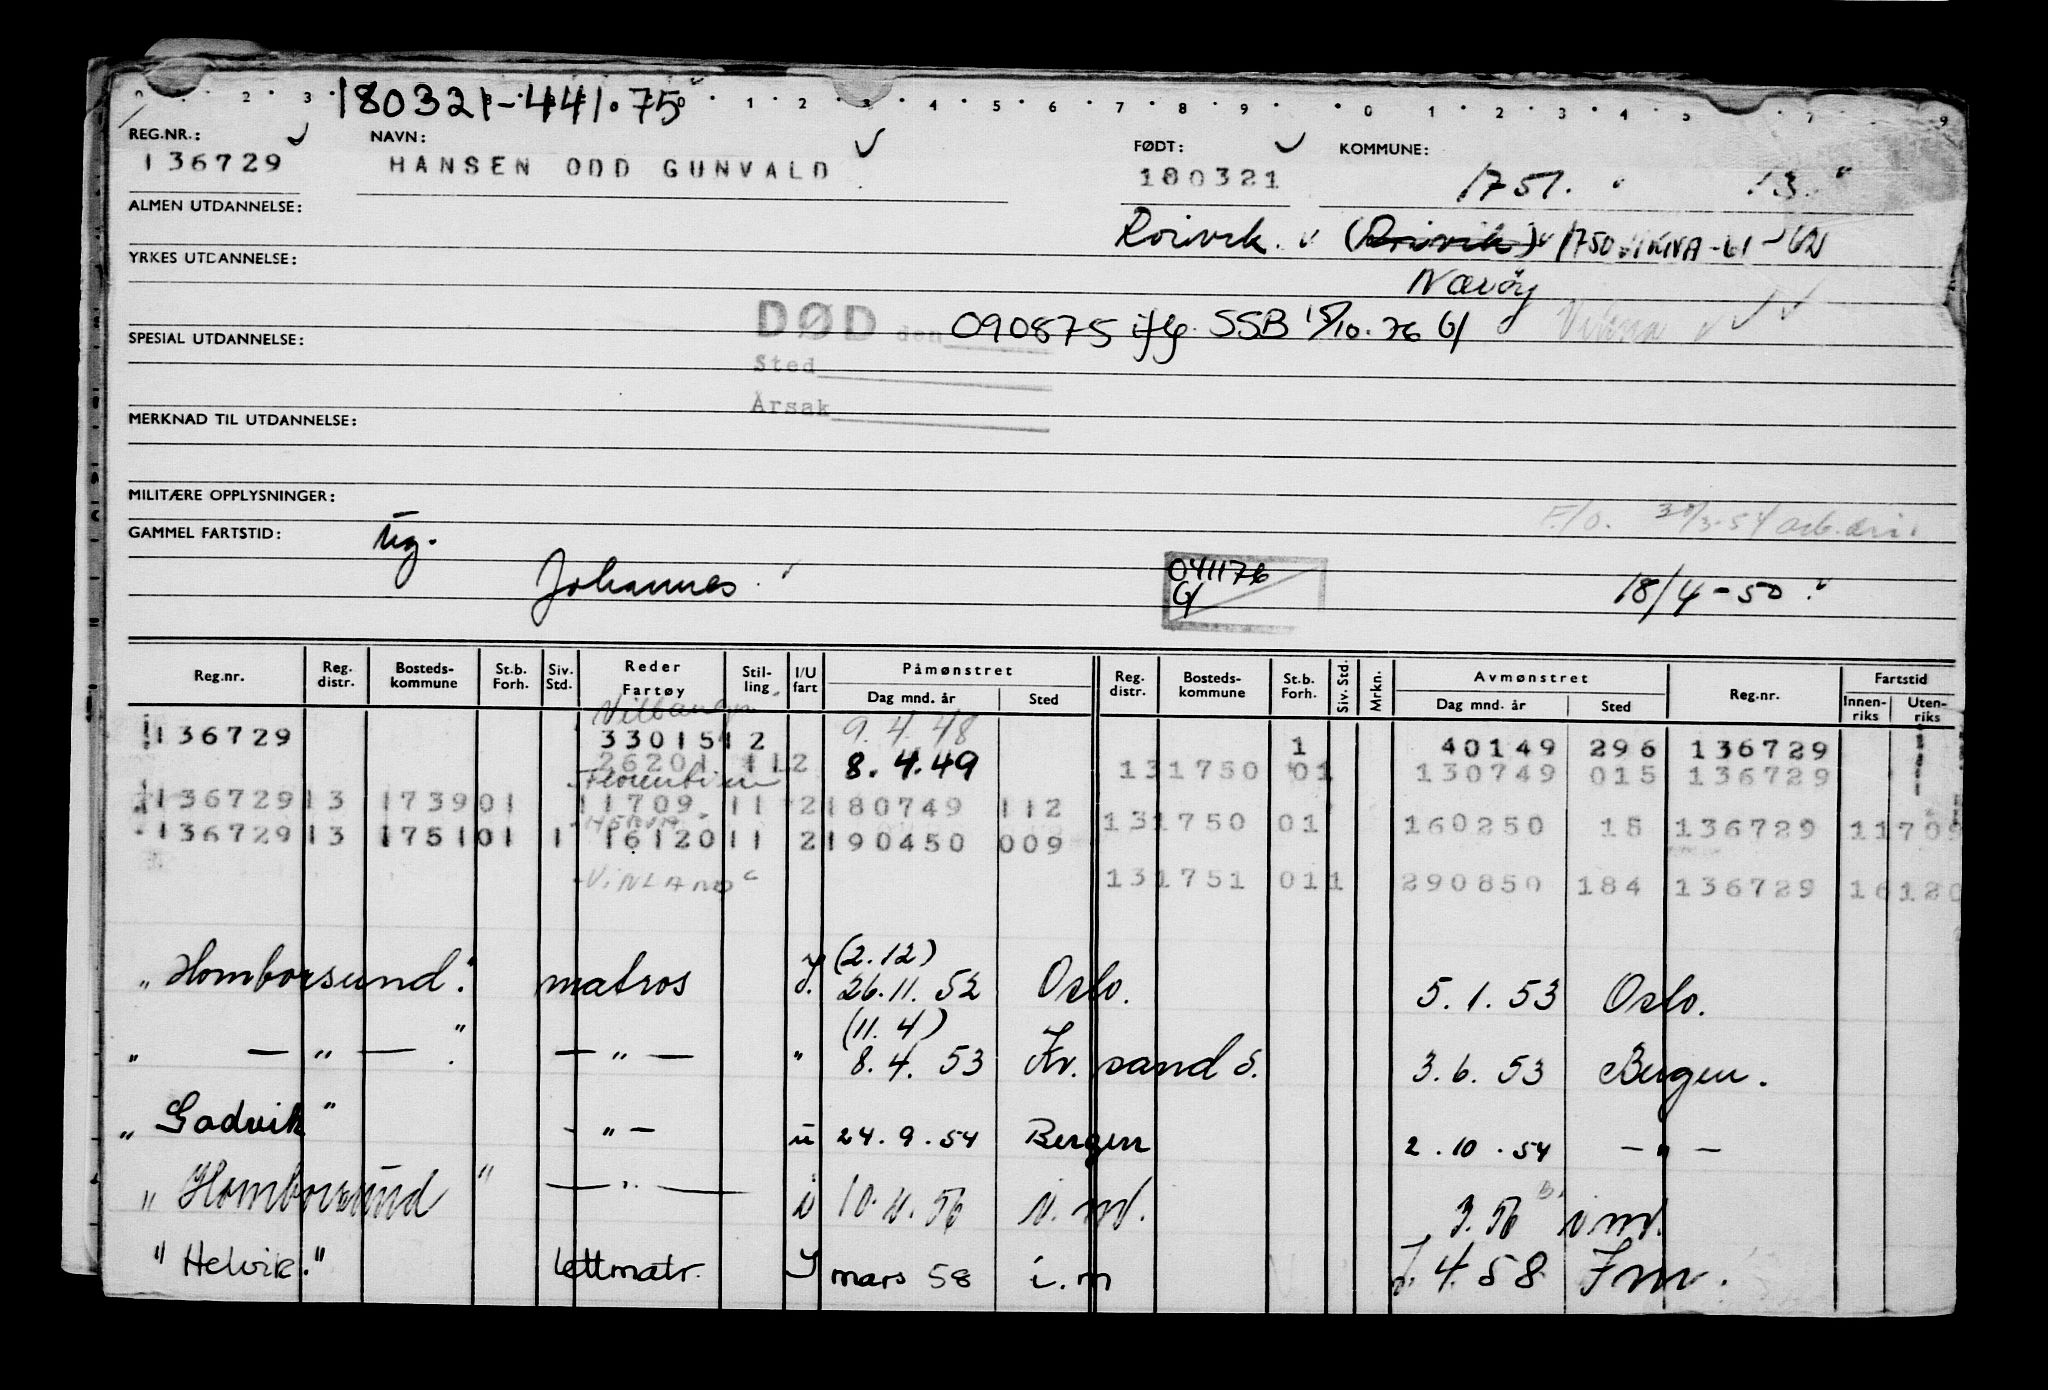 180321-441.75
REG.NR.: NAVN: FØDT: KOMMUNE:
136729 HANSEN ODD GUNVALD 180321 1751. 13.
ALMEN UTDANNELSE:
Rørvik. 1750 VIKNA-61-62
YRKES UTDANNELSE:
Nærøy
DØD den 090875 iflg. SSB 15/10.76 Vikna
SPESIAL UTDANNELSE:
Sted
Årsak
MERKNAD TIL UTDANNELSE:
MILITÆRE OPPLYSNINGER:
GAMMEL FARTSTID: ug.
Johannes. 041176 18/4-50
Reg.nr. Reg. distr. Bosteds-kommune St.b. Forh. Siv. Std. Reder Fartøy Stil-ling I/U fart Påmønstret Dag mnd. år Sted Reg. distr. Bosteds-kommune St.b. Forh. Siv. Std. Mrkn. Avmønstret Dag mnd. år Sted Reg.nr. Fartstid Innen-riks Uten-riks
136729 33015 12 9.4.48 1 40149 296 136729
26201 112 8.4.49 131750 01 130749 015 136729
136729 13 1739 01 11709 11 2 180749 112
131750 01 160250 15 136729 11709
136729 13 1751 01 1 16120 11 2 190450 009
VINLAND 131751 01 1 290850 184 136729 16120
(2.12)
"Homborsund". matros 26.11.52 Oslo. 5.1.53 Oslo.
(11.4)
" — " — ". — " — " 8.4.53 Kr. sand S. 3.6.53 Bergen.
"Godvik" - " - u 24.9.54 Bergen 2.10.54 — " —
"Homborsund" — " — i.m. 3.56 i.m.
"Helvik." lettmatr. mars 58 i.m 4.58 I m.